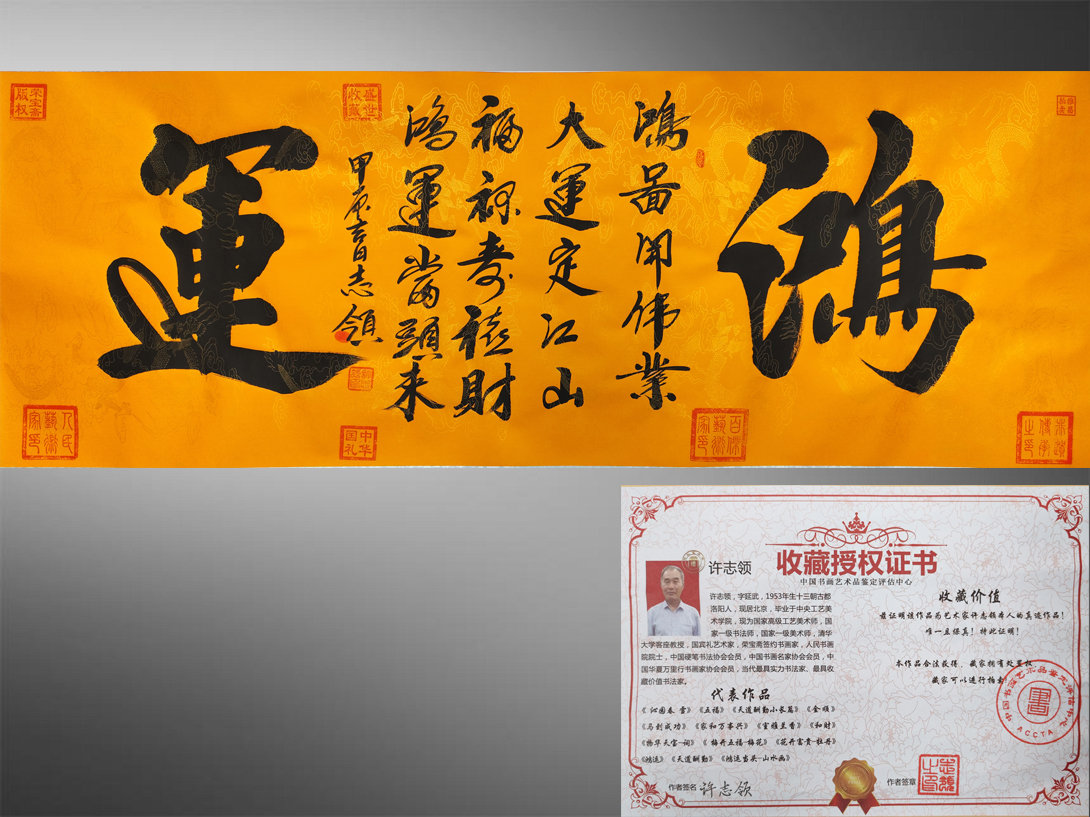 鴻運
鴻圖開伟業
大運定江山
福禄寿禧財
鴻運當頭来
甲辰吉日志領
荣宝斋版权
盛世收藏
人民藝術家印
中华国礼
百杰藝術家印
收藏授权证书
中国书画艺术品鉴定评估中心
许志领
许志领，字延武，1953年生十三朝古都
洛阳人，现居北京，毕业于中央工艺美
术学院，现为国家高级工艺美术师，国
家一级书法师，国家一级美术师，清华
大学客座教授，国宾礼艺术家，荣宝斋签约书画家，人民书画
院院士，中国硬笔书法协会会员，中国书画名家协会会员，中
国华夏万里行书画家协会会员，当代最具实力书法家、最具收
藏价值书法家。
代表作品
《沁园春 雪》《五福》《天道酬勤小长篇》《金顺》
《马到成功》《家和万事兴》《室雅兰香》《和财》
《物华天宝-词》《梅开五福-梅花》《花开富贵-牡丹》
《鸿运》《天道酬勤》《鸿运当头-山水画》
作者签名 许志领
收藏价值
兹证明该作品为艺术家许志领本人的真迹作品！
唯一且保真！特此证明！
本作品合法获得，藏家拥有处置权
藏家可以进行拍卖
中国书画艺术品鉴定评估中心
書
ACCTA
作者签章